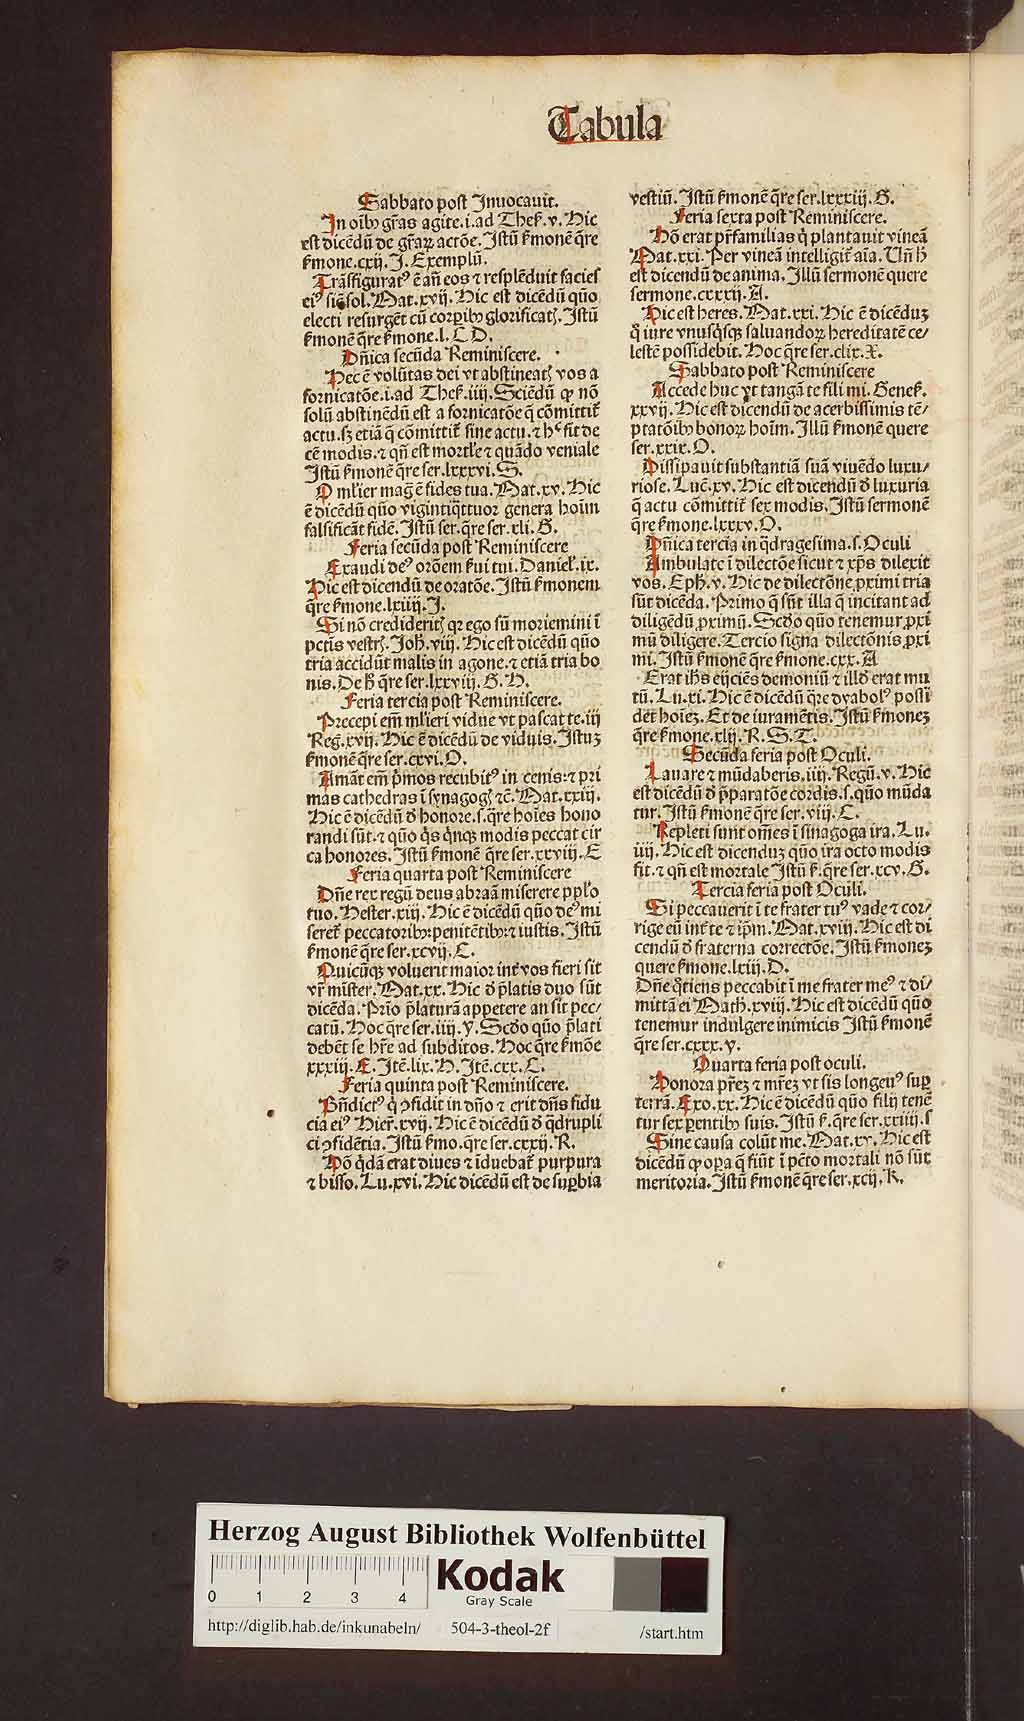 Tabula
Sabbato post Inuocauit.
In oībꝫ gr̄as agite.i.ad Theſ.v. Hic
est dicēdū de gr̄aꝝ actōe. Istū ẜmonē q̄re
ẜmone.cxij. J. Exemplū.
Trāſfiguratꝰ ē añ eos ⁊ resplēduit facies
eiꝰ sic̄ sol. Mat.xvij. Hic est dicēdū quō
electi resurgēt cū corꝑibꝫ glorificatꝭ. Istū
ẜmonē q̄re ẜmone.l. C D.
Dñica secūda Reminiscere.
Hec ē volūtas dei vt abstineatꝭ vos a
fornicatōe.i.ad Theſ.iiij. Sciēdū ꝙ nō
solū abstinēdū est a fornicatōe q̄ cōmittit̄
actu.sꝫ etiā q̄ cōmittit̄ sine actu.⁊ hͨ fit de
cē modis.⁊ qñ est mortl'e ⁊ quādo veniale
Istū ẜmonē q̄re ser.lxxxvi. S.
O ml'ier maḡ ē fides tua. Mat.xv. Hic
ē dicēdū quō vigintiq̄ttuor genera hoīm
falsificāt fidē. Istū ser.q̄re ser.xli. G.
Feria secūda post Reminiscere
Exaudi deꝰ orōem ẜui tui. Daniel'.ix.
Hic est dicendū de oratōe. Istū ẜmonem
q̄re ẜmone.lxiiij. J.
Si nō credideritꝭ qꝛ ego sū moriemini ī
pctis vestrꝭ. Joh̄.viij. Hic est dicēdū quō
tria accidūt malis in agone.⁊ etiā tria bo
nis. De h̄ q̄re ser.lxxviij. G. H.
Feria tercia post Reminiscere.
Precepi em̄ ml'ieri vidue vt pascat te.iij
Reḡ.xvij. Hic ē dicēdū de viduis. Istuꝫ
ẜmonē q̄re ser.cxvi. O.
Amāt em̄ p̄mos recubitꝰ in cenis:⁊ pri
mas cathedras ī synagogꝭ ⁊c̄. Mat.xxiij.
Hic ē dicēdū ď honore.s.q̄re hoīes hono
randi sūt.⁊ quō q̇s q̇nqꝫ modis peccat cir
ca honores. Istū ẜmonē q̄re ser.xxviij. E
Feria quarta post Reminiscere
Dñe rex regū deus abraā miserere ppl'o
tuo. Hester.xiij. Hic ē dicēdū quō deꝰ mi
seret̄ peccatoribꝫ:penitētibꝫ:⁊ iustis. Istū
ẜmonē q̄re ser.xcvij. C.
Quicūqꝫ voluerit maior int̄ vos fieri sit
vr̄ mīster. Mat.xx. Hic ď p̄latis duo sūt
dicēda. Prīo p̄laturā appetere an sit pec⸗
catū. Hoc q̄re ser.iiij. V. Scďo quō p̄lati
debēt se hr̄e ad subditos. Hoc q̄re ẜmōe
xxxiij. E. Itē.lix. H. Itē.cxx. C.
Feria quinta post Reminiscere.
Bn̄dictꝰ q̇ ꝯfidit in dño ⁊ erit dñs fidu
cia eiꝰ Hier̄.xvij. Hic ē dicēdū ď q̄drupli
ci ꝯfidētia. Istū ẜmo.q̄re ser.cxxij. R.
Hō q̇dā erat diues ⁊ īduebat̄ purpura
⁊ bisso. Lu.xvi. Hic dicēdū est de suꝑbia
vestiū. Istū ẜmonē q̄re ser.lxxxiij. G.
Feria sexta post Reminiscere.
Hō erat pr̄familias q̇ plantauit vineā
Mat.xxi. Per vineā intelligit̄ aīa. Uñ h̄
est dicendū de anima. Illū sermonē quere
sermone.cxxxij. A.
Hic est heres. Mat.xxi. Hic ē dicēduꝫ
q̇ iure vnusq̇sqꝫ saluandoꝝ hereditatē ce⸗
lestē possidebit. Hoc q̄re ser.clix. X.
Sabbato post Reminiscere
Accede huc vt tangā te fili mi. Geneſ.
xxvij. Hic est dicendū de acerbissimis tē⸗
ptatōibꝫ bonoꝝ hoīm. Illū ẜmonē quere
ser.xxix. O.
Dissipauit substantiā suā viuēdo luxu⸗
riose. Luc̄.xv. Hic est dicendū ď luxuria
q̄ actu cōmittit̄ sex modis. Istū sermonē
q̄re ẜmone.lxxxv. O.
Dñica tercia in q̄dragesima.s. Oculi
Ambulate ī dilectōe sicut ⁊ xp̄s dilexit
vos. Eph̄.v. Hic de dilectōne ꝓximi tria
sūt dicēda. Primo q̄ sūt illa q̄ incitant ad
diligēdū ꝓximū. Scďo quō tenemur ꝓxi
mū diligere. Tercio signa dilectōnis ꝓxi
mi. Istū ẜmonē q̄re ẜmone.cxx. A
Erat ih̄s eijciēs demoniū ⁊ illď erat mu
tū. Lu.xi. Hic ē dicēdū q̄re dyabolꝰ possi
det hoīeꝫ. Et de iuramētis. Istū ẜmoneꝫ
q̄re ẜmone.xlij. R. S. T.
Secūda feria post Oculi.
Lauare ⁊ mūdaberis.iiij. Regū.v. Hic
est dicēdū ď p̄paratōe cordis.s.quō mūda
tur. Istū ẜmonē q̄re ser.viij. C.
Repleti sunt om̄es ī sinagoga ira. Lu.
iiij. Hic est dicenduꝫ quō ira octo modis
fit.⁊ qñ est mortale Istū ẜ.q̄re ser.xcv. G.
Tercia feria post Oculi.
Si peccauerit ī te frater tuꝰ vade ⁊ cor⸗
rige eū int̄ te ⁊ ip̄m. Mat.xviij. Hic est di
cendū ď fraterna correctōe. Istū ẜmoneꝫ
quere ẜmone.lxiij. D.
Dñe q̇tiens peccabit ī me frater meꝰ ⁊ di⸗
mittā ei Math̄.xviij. Hic est dicēdū quō
tenemur indulgere inimicis Istū ẜmonē
q̄re ser.cxxx. v.
Quarta feria post oculi.
Honora pr̄eꝫ ⁊ mr̄eꝫ vt sis longeuꝰ suꝑ
terrā. Exo.xx. Hic ē dicēdū quō filij tenē
tur sex ꝑentibꝫ suis. Istū ẜ.q̄re ser.xxiiij. s
Sine causa colūt me. Mat.xv. Hic est
dicēdū ꝙ oꝑa q̄ fiūt ī pctō mortali nō sūt
meritoria. Istū ẜmonē q̄re ser.xcij. K.
Herzog August Bibliothek Wolfenbüttel
0 1 2 3 4
Kodak
Gray Scale
http://diglib.hab.de/inkunabeln/ 504-3-theol-2f /start.htm